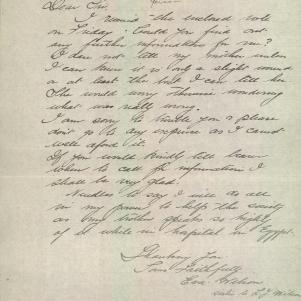 Dear Sir,
I received the enclosed note
on Friday. Could you find out
any further information for me?
I dare not tell my mother unless
I can know it is only a slight wound
or at least then but I can tell her
She would worry otherwise wondering
what was really wrong.
I am sorry to trouble you & please
don't go to any expense as I cannot
well afford it.
If you would kindly tell bearer
when to call for information I
shall be very glad.
Needless to say I will do all
in my power to help the society
as my brother speaks so highly
of it while in hospital in Egypt.
Thanking you
Yours Faithfully
Eva Wilson
sister to L. J. Wilson